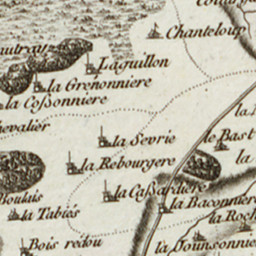 Chanteloup
Laguillon
la Grenonniere
la Coßonniere
la Sevrie
le Bast
la Rebourgere
la
la Caßardiere
Boulais
la Baconniere
la Tabiés
la Roch
Bois redou
la Jounsonnie